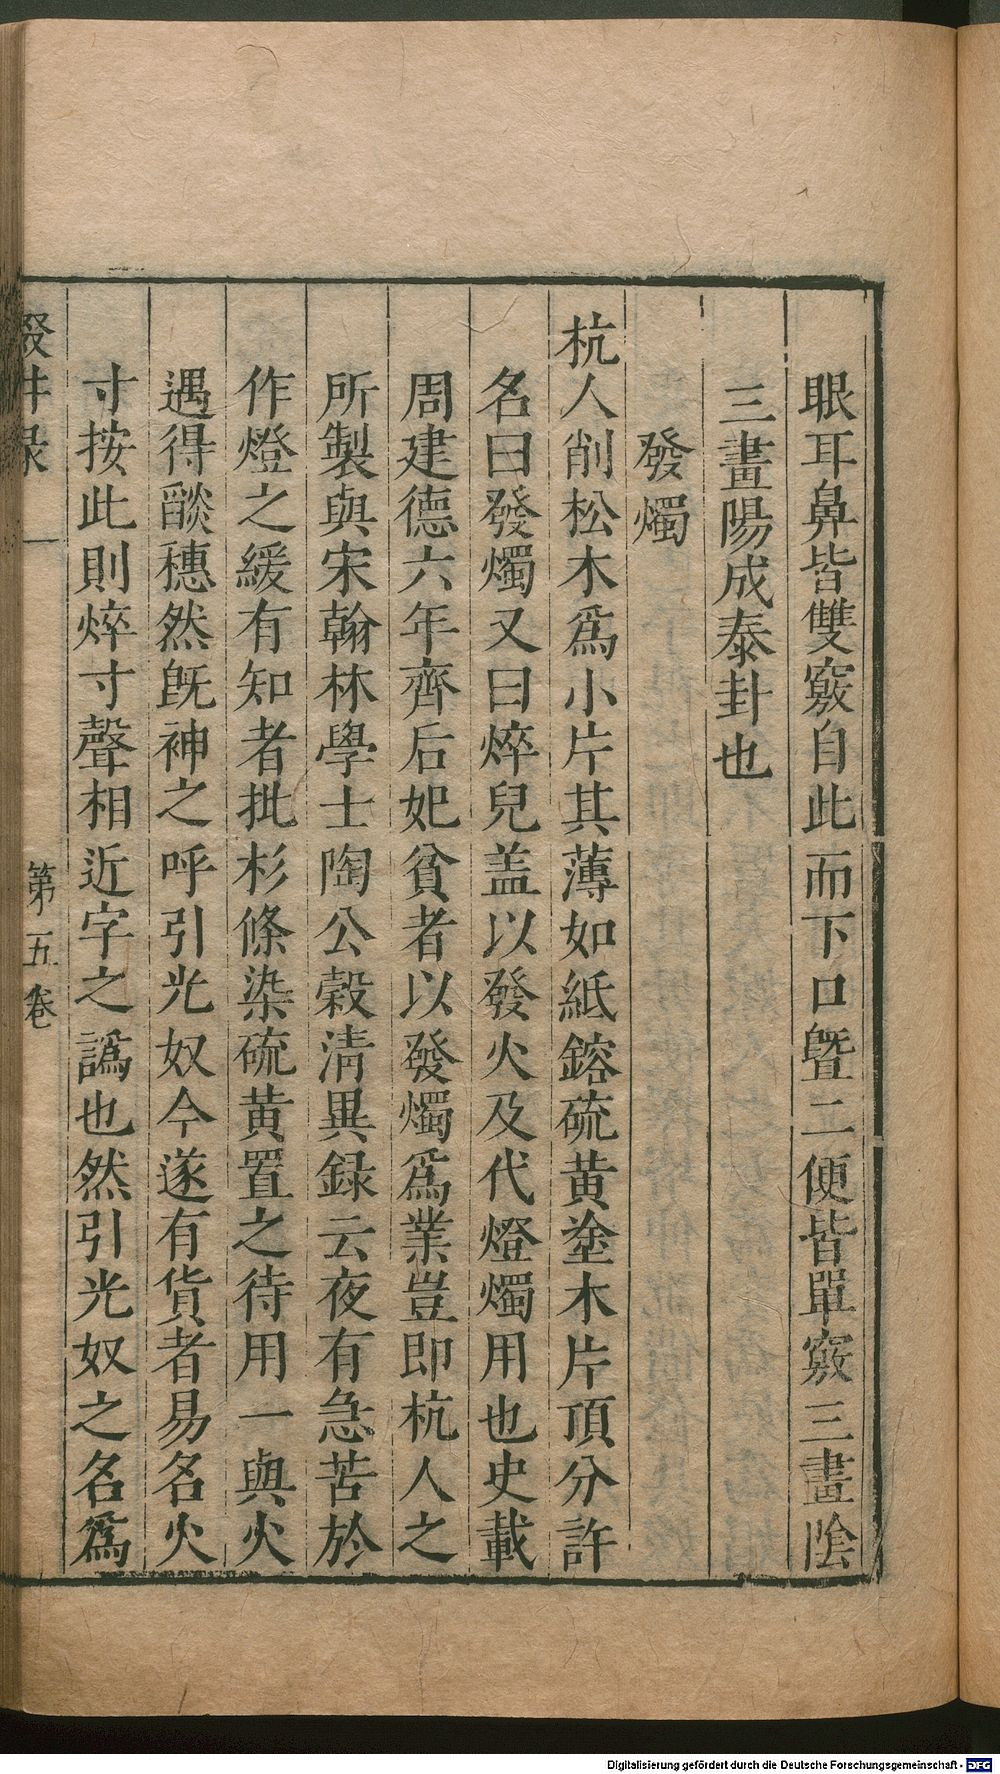 眼耳鼻皆雙竅自此而下口曁二便皆單竅三畫陰
三畫陽成泰卦也
發燭
杭人削松木爲小片其薄如紙鎔硫黃塗木片頂分許
名曰發燭又曰焠兒盖以發火及代燈燭用也史載
周建德六年齊后妃貧者以發燭爲業豈即杭人之
所製與宋翰林學士陶公榖清異録云夜有急苦於
作燈之緩有知者批杉條染硫黃置之待用一與火
遇得燄穗然旣神之呼引光奴今遂有貨者易名火
寸按此則焠寸聲相近字之譌也然引光奴之名爲
第五卷
Digitalisierung gefördert durch die Deutsche Forschungsgemeinschaft - DFG